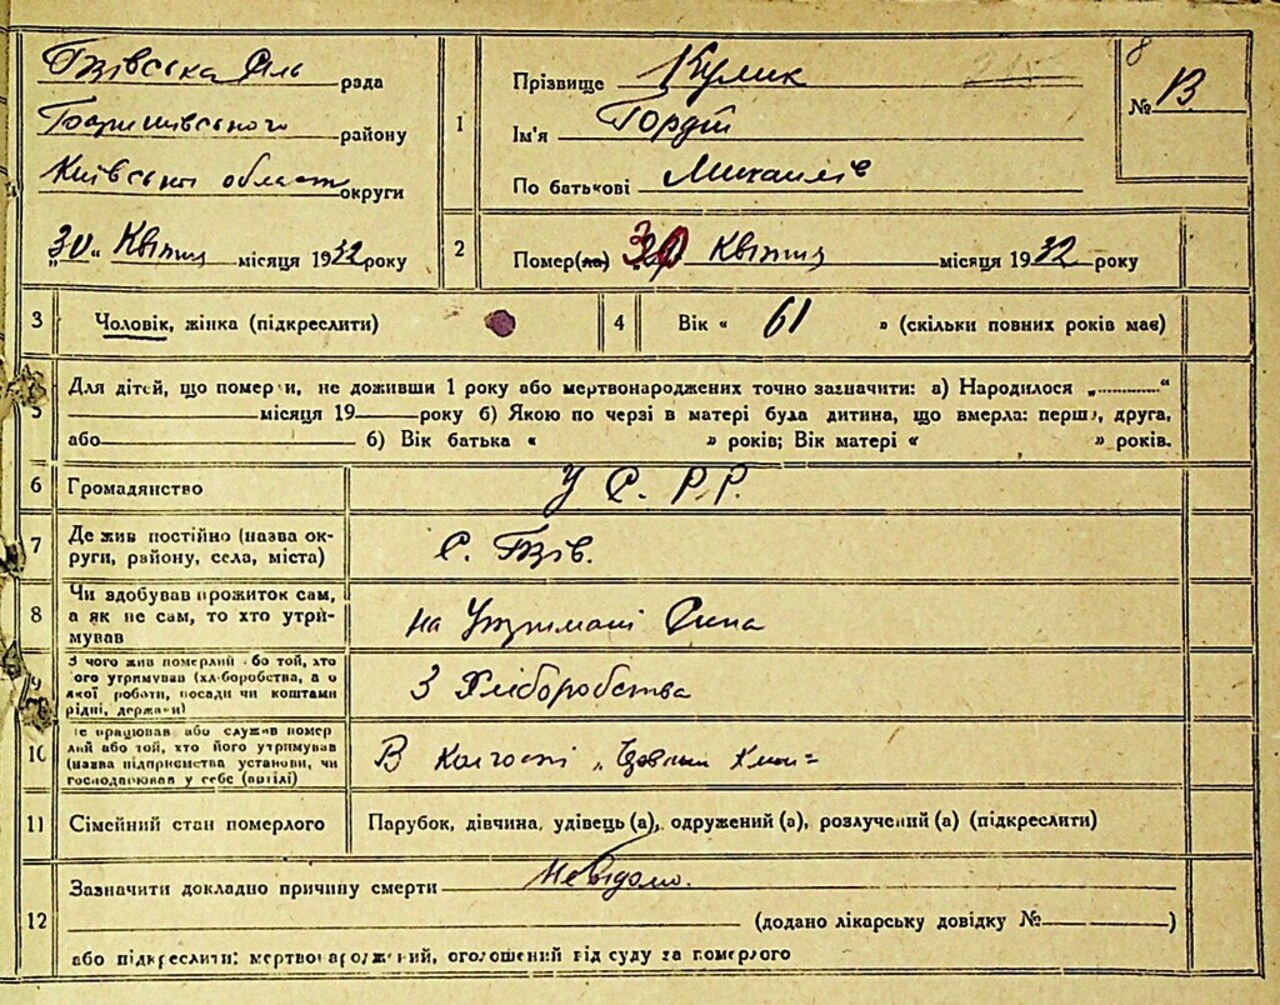 Гзівська Сіль рада
Баришівського району
Київської області округи
„30“ Квітня місяця 1932 року
1
Прізвище Кулик
Ім'я Гордій
По батькові Михайлів
8
№ В.
2
Помер(ла) 30 Квітня місяця 1932 року
3
Чоловік, жінка (підкреслити)
4
Вік „ 61 » (скільки повних років має)
5
Для дітей, що померли, не доживши 1 року або мертвонароджених точно зазначити: а) Народилося „..........“
місяця 19 року б) Якою по черзі в матері була дитина, що вмерла: перша, друга,
або 6) Вік батька « » років; Вік матері « » років.
6
Громадянство
У С. Р.Р.
7
Де жив постійно (назва ок-
руги, району, села, міста)
С. Гзів.
8
Чи здобував прожиток сам,
а як не сам, то хто утри-
мував
на Утримані Сина
9
З чого жив померлий або той, хто
його утримував (хліборобства, а о
якої роботи, посади чи коштами
рідні, держави)
З Хліборобства
10
Де працював або служив помер
лий або той, хто його утримував
(назва підприємства установи, чи
господарював у себе (вдома)
В Колгоспі
11
Сімейний стан померлого
Парубок, дівчина, удівець (а), одружений (а), розлучений (а) (підкреслити)
12
Зазначити докладно причину смерти Невідомо.
(додано лікарську довідку № )
або підкреслити: мертвонароджений, оголошений від суду за померлого